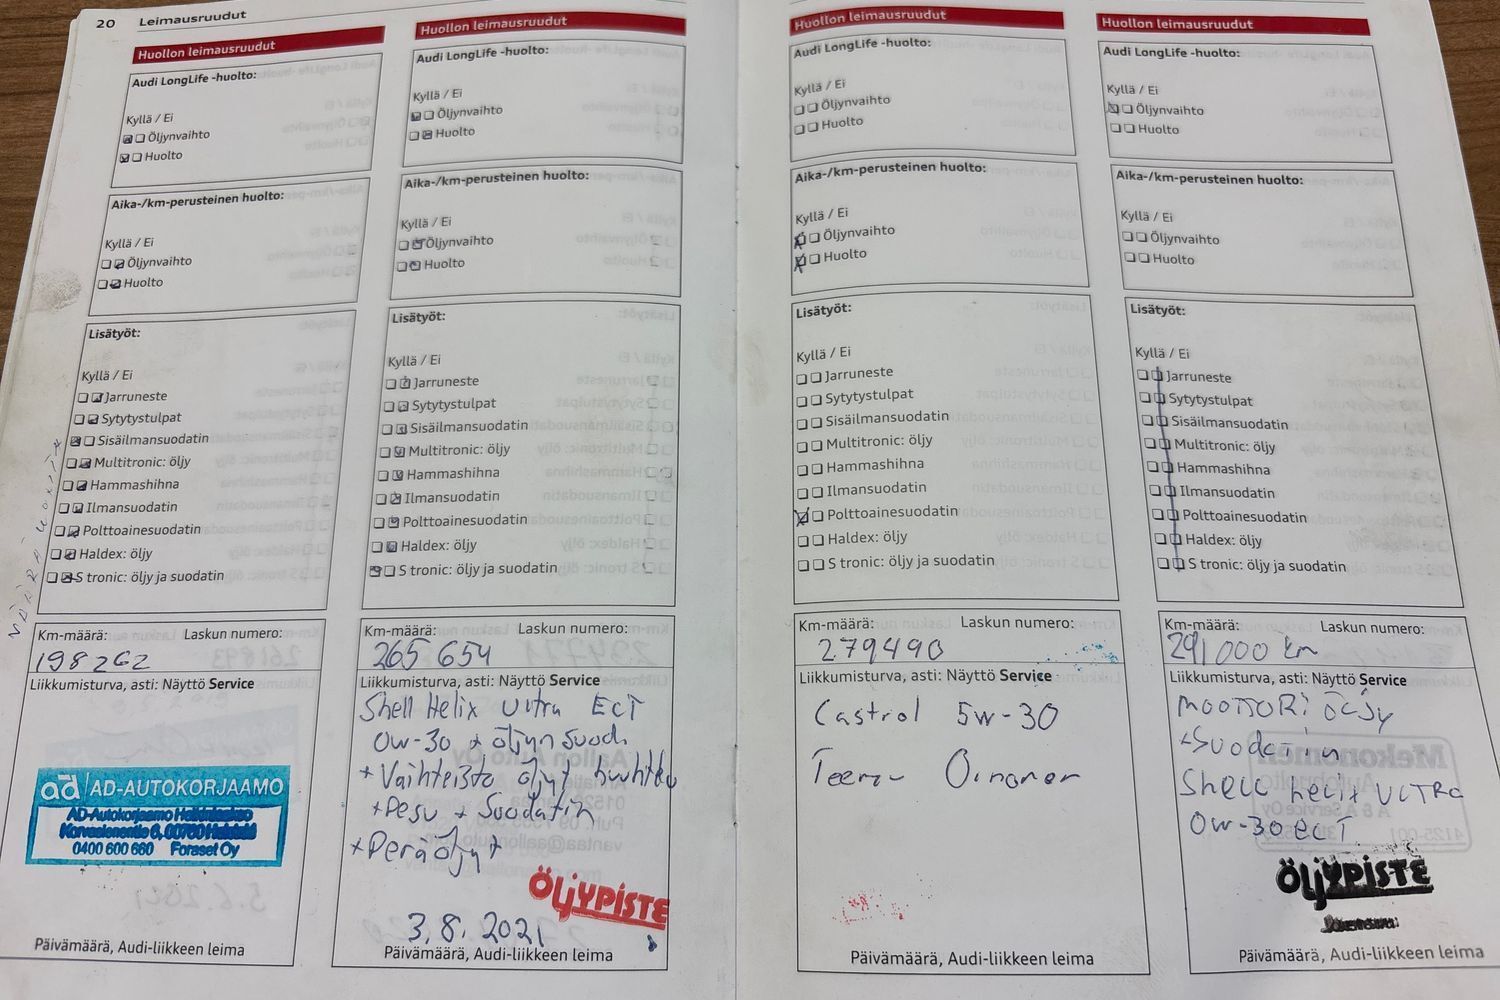 20 Leimausruudut
Huollon leimausruudut
Audi LongLife -huolto:
Kyllä / Ei
Öljynvaihto
Huolto
Aika-/km-perusteinen huolto:
Kyllä / Ei
Öljynvaihto
Huolto
Lisätyöt:
Kyllä / Ei
Jarruneste
Sytytystulpat
Sisäilmansuodatin
Multitronic: öljy
Hammashihna
Ilmansuodatin
Polttoainesuodatin
Haldex: öljy
S tronic: öljy ja suodatin
Km-määrä: Laskun numero:
198262
Liikkumisturva, asti: Näyttö Service
ad AD-AUTOKORJAAMO
0400 600 660 Foraset Oy
Päivämäärä, Audi-liikkeen leima
Huollon leimausruudut
Audi LongLife -huolto:
Kyllä / Ei
Öljynvaihto
Huolto
Aika-/km-perusteinen huolto:
Kyllä / Ei
Öljynvaihto
Huolto
Lisätyöt:
Kyllä / Ei
Jarruneste
Sytytystulpat
Sisäilmansuodatin
Multitronic: öljy
Hammashihna
Ilmansuodatin
Polttoainesuodatin
Haldex: öljy
S tronic: öljy ja suodatin
Km-määrä: Laskun numero:
265 654
Liikkumisturva, asti: Näyttö Service
Shell Helix Ultra ECT
0w-30 + öljyn suod.
+ Vaihteisto öljyt huuhtelu
+ Pesu + Suodatin
+ Peräöljyt
ÖLJYPISTE
3.8.2021
Päivämäärä, Audi-liikkeen leima
Huollon leimausruudut
Audi LongLife -huolto:
Kyllä / Ei
Öljynvaihto
Huolto
Aika-/km-perusteinen huolto:
Kyllä / Ei
Öljynvaihto
Huolto
Lisätyöt:
Kyllä / Ei
Jarruneste
Sytytystulpat
Sisäilmansuodatin
Multitronic: öljy
Hammashihna
Ilmansuodatin
Polttoainesuodatin
Haldex: öljy
S tronic: öljy ja suodatin
Km-määrä: Laskun numero:
279490
Liikkumisturva, asti: Näyttö Service
Castrol 5w-30
Päivämäärä, Audi-liikkeen leima
Huollon leimausruudut
Audi LongLife -huolto:
Kyllä / Ei
Öljynvaihto
Huolto
Aika-/km-perusteinen huolto:
Kyllä / Ei
Öljynvaihto
Huolto
Lisätyöt:
Kyllä / Ei
Jarruneste
Sytytystulpat
Sisäilmansuodatin
Multitronic: öljy
Hammashihna
Ilmansuodatin
Polttoainesuodatin
Haldex: öljy
S tronic: öljy ja suodatin
Km-määrä: Laskun numero:
291,000 km
Liikkumisturva, asti: Näyttö Service
MOOTTORI ÖLJY
+SuodatiN
Shell helix ULTRA
0w-30 ECT
ÖLJYPISTE
Päivämäärä, Audi-liikkeen leima